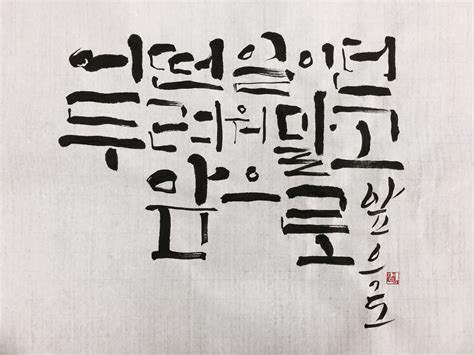 어떤일이던
두려워말고
앞으로
앞으로